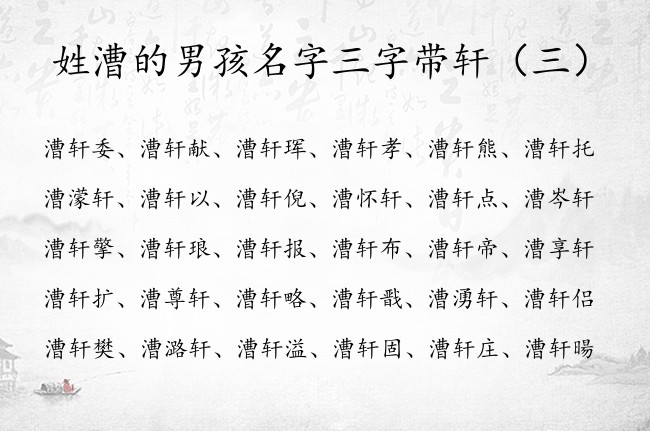 姓漕的男孩名字三字带轩（三）
漕轩委、漕轩献、漕轩珲、漕轩孝、漕轩熊、漕轩托
漕濛轩、漕轩以、漕轩倪、漕怀轩、漕轩点、漕岑轩
漕轩擎、漕轩琅、漕轩报、漕轩布、漕轩帝、漕享轩
漕轩扩、漕尊轩、漕轩略、漕轩戬、漕湧轩、漕轩侣
漕轩樊、漕潞轩、漕轩溢、漕轩固、漕轩庄、漕轩暘